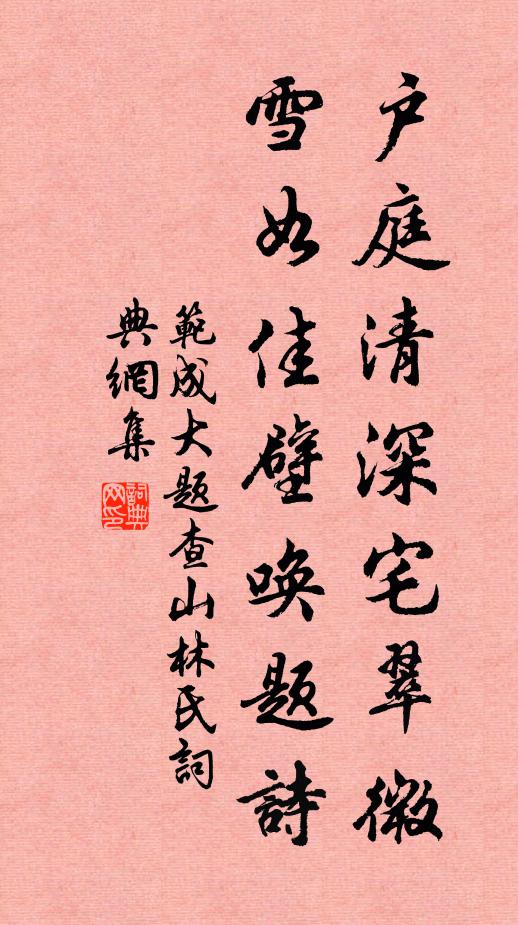 户庭清深宅翠微
雪如佳壁唤题詩
範成大题查山林氏詞
典網集
詞典網印